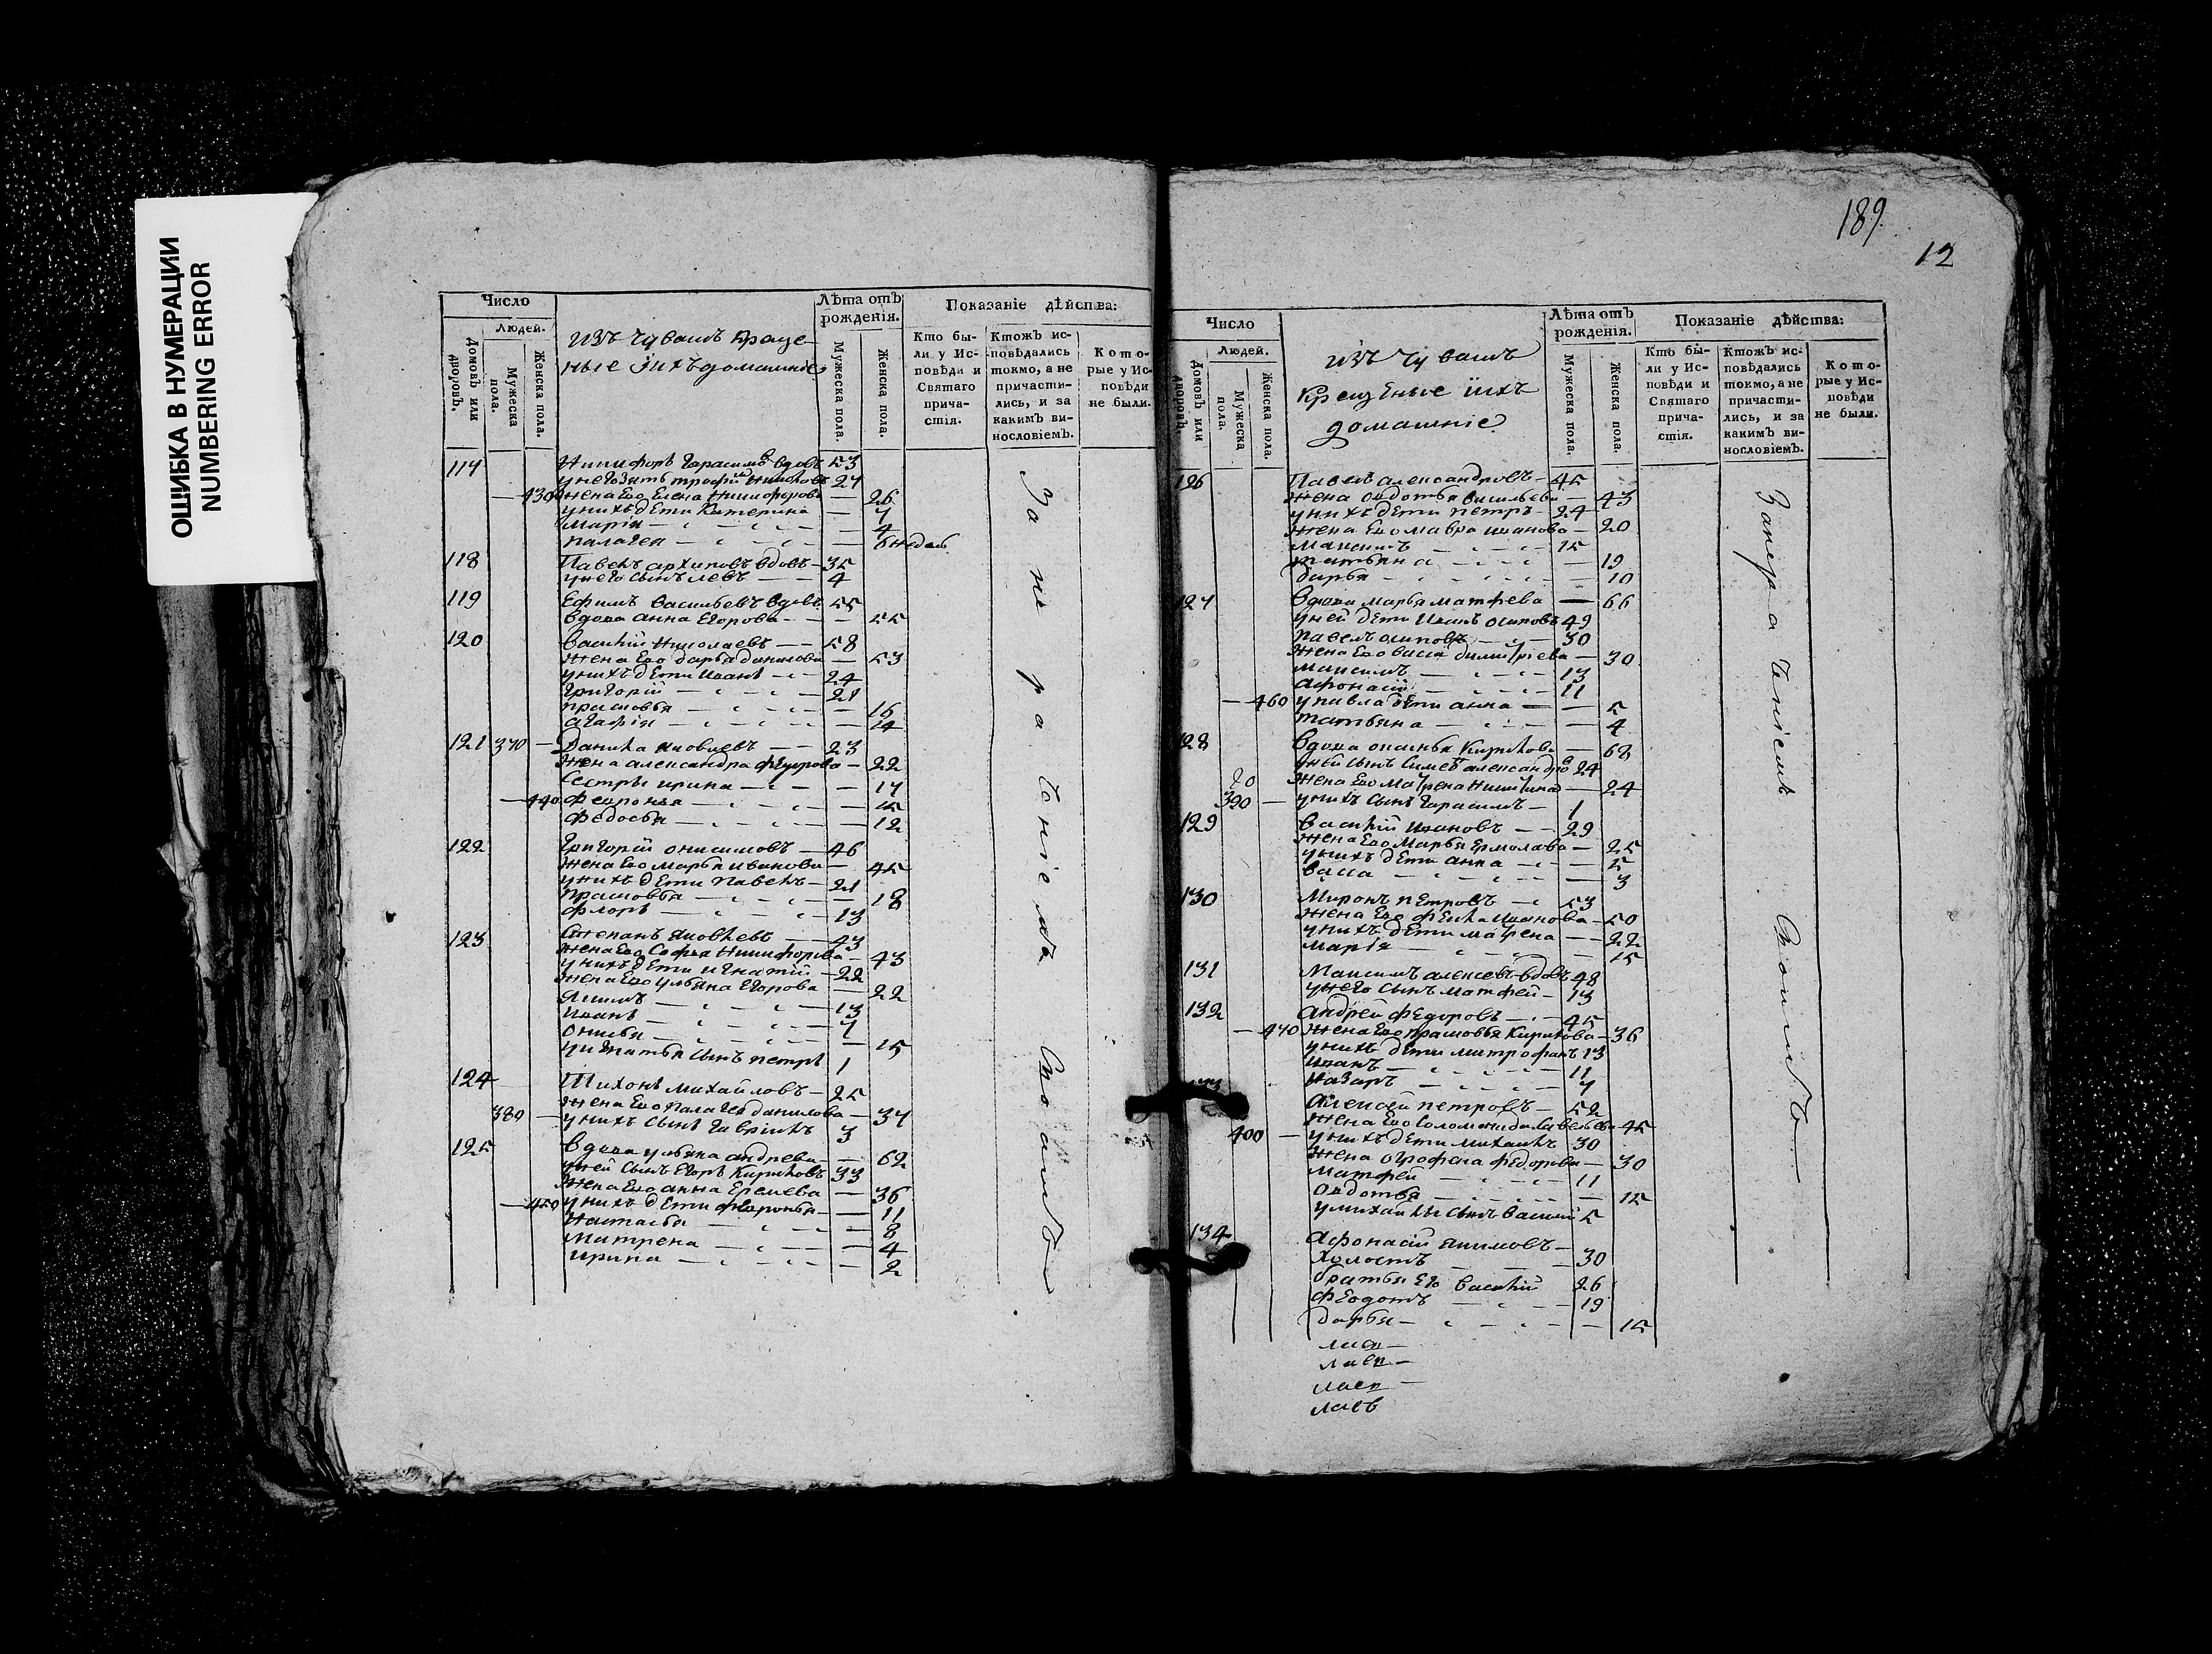 ОШИБКА В НУМЕРАЦИИ
NUMBERING ERROR
189.
12
Число
Людей.
Домовъ или дворовъ.
Мужеска пола.
Женска пола.
изъ чувашъ креще
ные їихъ домашніе
Лѣта отъ рожденія.
Мужеска пола.
Женска пола.
Показаніе дѣйства:
Кто были у Исповѣди и Святаго причастія.
Ктожъ исповѣдались токмо, а не причастились, и за какимъ винословіемъ.
Которые у Исповѣди не были.
Никифоръ Герасимовъ вдовъ 53
430 жена Его Елена Никифорова — 26
у нихъ дѣти Катерина — 7
Марія — 4
Палагея — 6 недел
118 Павелъ архиповъ вдовъ — 35
у него сынъ левъ — 4
119 Ефимъ васильевъ вдовъ 55
вдова анна Егорова — 55
120 василій Николаевъ — 58
жена Его дарья данилова — 53
у нихъ дѣти иванъ — 24
григорій — 21
прасковья — 16
агафія — 14
121 370 — Данила яковлевъ — 23
жена александра федорова — 22
сестры ирина — 17
440 Февронья — 15
Федосья — 12
122 григорій онисимовъ — 46
жена Его марья иванова — 45
у нихъ дѣти павелъ — 21
прасковья — 18
флоръ — 13
123 степанъ яковлевъ — 43
жена Его Софья Никифорова — 43
у нихъ дѣти игнатій — 22
жена Его ульяна Егорова — 22
якимъ — 13
иванъ — 7
— 15
у игнатья сынъ петръ 1
124 Тихонъ михайловъ — 25
жена Его палагея данилова — 37
380 — у нихъ сынъ гаврилъ 3
125 вдова ульяна андрева — 62
у ней сынъ Егоръ Кириловъ 33
жена Его анна Еремева — 36
450 у нихъ дѣти февронья — 11
настасья — 8
матрена — 4
ирина — 2
За нераченіемъ своимъ
Число
Людей.
Домовъ или дворовъ.
Мужеска пола.
Женска пола.
изъ чувашъ
крещеные їихъ
домашніе
Лѣта отъ рожденія.
Мужеска пола.
Женска пола.
Показаніе дѣйства:
Кто были у Исповѣди и Святаго причастія.
Ктожъ исповѣдались токмо, а не причастились, и за какимъ винословіемъ.
Которые у Исповѣди не были.
126 Павелъ александровъ — 45
жена овдотья васильева — 43
у нихъ дѣти петръ — 24
жена Его мавра иванова — 20
максимъ — 15
татьяна — 19
дарья — 10
127 вдова марья матфева — 66
у ней дѣти иванъ осиповъ 49
павелъ осиповъ — 30
жена Его васса димитріева — 30
максимъ — 13
афонасій — 11
460 у павла дѣти анна — 5
татьяна — 4
128 вдова Кирилова — 68
у ней сынъ александро 24
20
жена Его матрена Никитина — 24
390 — у нихъ сынъ герасимъ — 1
129 василій ивановъ — 29
жена Его марья Ермолаева — 25
у нихъ дѣти анна — 5
васса — 3
130 Миронъ петровъ — 53
жена Его фекла иванова — 50
у нихъ дѣти матрена — 22
марія — 15
131 Максимъ алексевъ вдовъ 48
у него сынъ матфей — 13
132 андрей федоровъ — 45
470 жена Его прасковья Кирилова — 36
у нихъ дѣти митрофанъ 13
иванъ — 11
назаръ — 7
Алексей петровъ — 52
жена Его соломонида савельева 45
400 — у нихъ дѣти михаилъ 30
жена федорова — 30
матфей — 11
овдотья — 15
у михаилы сынъ василій 5
134 афонасій якимовъ —
холостъ — 30
братья Его василій 26
федотъ — 19
дарья — 15
За нераченіемъ своимъ